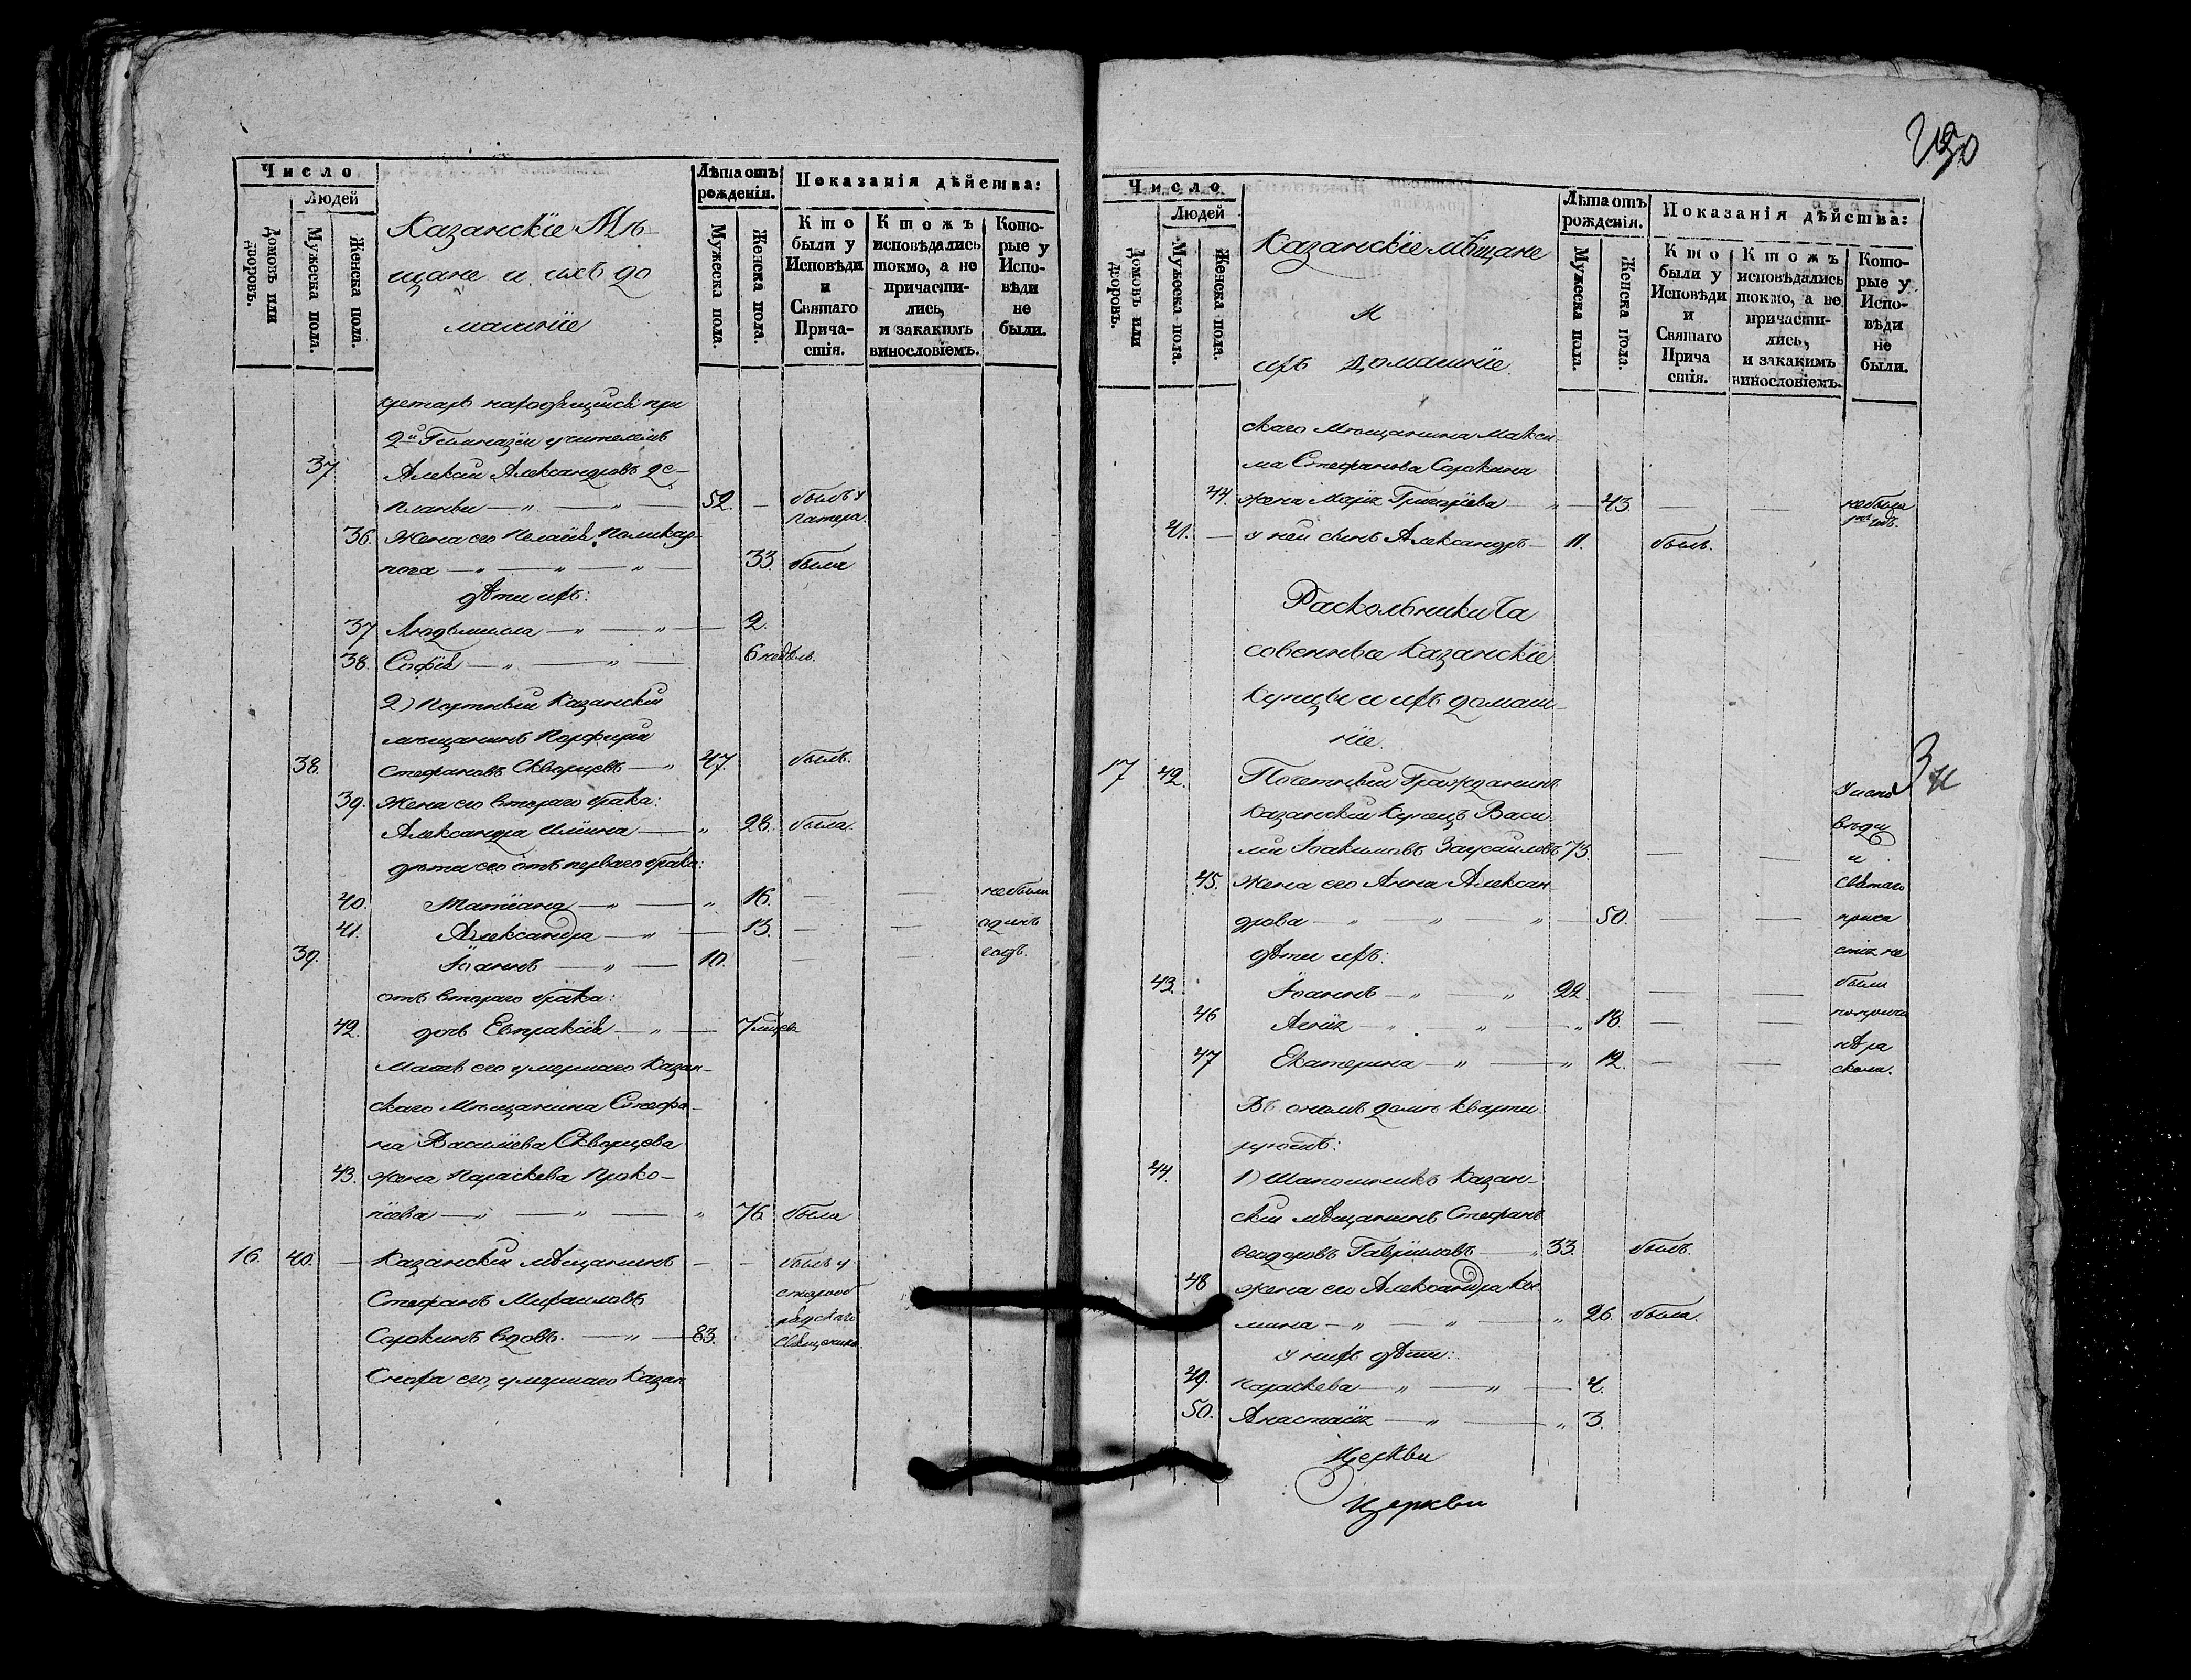 Число
Людей
Домовъ или дворовъ.
Мужеска пола.
Женска пола.
Казанскіе Мѣ-
щане и ихъ до
машніе
Лѣта отъ рожденія.
Мужеска пола.
Женска пола.
Показанія дѣйства:
Кто были у Исповѣди и Святаго Прича-стія.
Ктожъ исповѣдались токмо, а не причасти-лись, и закакимъ винословіемъ.
Кото-рые у Испо-вѣди не были.
кретарь находящійся при
2й Гимназіи учителемъ
37 Алексѣй Александровъ де-
Планьи — " — " — 52. — былъ у патера.
36. Жена его Пелагія Поликар-
пова — " — " — " — 33. была
дѣти ихъ:
37 Людьмилла — " — " — 2.
38. Софія — " — " — 6 недѣль.
2) Портный Казанскій
мѣщанинъ Порфирій
38. Стефановъ Скворцовъ — " 47. былъ.
39. Жена его втораго брака:
Александра Ильина — " 28. была.
дѣти его отъ перваго брака:
40. Татіана — " — " 16. — — не были
41. Александра — " — 13. — — одинъ
39. Іоаннъ — " — 10. — — годъ.
отъ втораго брака:
42. дочь Евпраксія — " — 7 мѣсяц.
Мать его умершаго Казан-
скаго Мѣщанина Стефа-
на Васильева Скворцова
43. жена Параскева Проко-
піева — " — " — " 76 была
16. 40. — Казанскій мѣщанинъ — — былъ у
Стефанъ Михайловъ старооб
Сорокинъ вдовъ. — " — 83. рядскаго священника
Сноха его, умершаго Казан
250
Число
Людей
Домовъ или дворовъ.
Мужеска пола.
Женска пола.
Казанскіе мѣщане
и
ихъ домашніе.
Лѣта отъ рожденія.
Мужеска пола.
Женска пола.
Показанія дѣйства:
Кто были у Исповѣди и Святаго Прича стія.
Ктожъ исповѣдались токмо, а не причасти-лись, и закакимъ винословіемъ.
Кото-рые у Испо-вѣди не были.
скаго Мѣщанина Макси-
ма Стефанова Сорокина
44. жена Марія Григорьева " — 43. — — не была
41. — у ней сынъ Александръ — 11. былъ.
Раскольники Ча
совенные Казанскіе
Купцы и ихъ домаш-
ніе.
17 42. Почетный Гражданинъ
Казанскій Купецъ Васи
лій Іоакимовъ Заусаиловъ 73. — —
45. Жена его Анна Алексан-
дрова — " — " — " — 50. — —
дѣти ихъ:
43. Іоаннъ — " — " 22. — —
46 — " — " — " 18. — —
47 Екатерина — " — " 12. — —
У испо
вѣди
и
святаго
прича
стія не
были
по
ра
скола.
Въ ономъ домѣ кварти
руютъ:
44. 1) Шапошникъ Казан-
скій мѣщанинъ Стефанъ
Ѳеодоровъ Гавриловъ — " 33. былъ.
48 жена его Александра Кос
мина — " — " — " 26. была.
у нихъ дѣти:
49. Параскева — " — " — 4.
50. Анастасія — " — " 3.
Церкви
Церкви